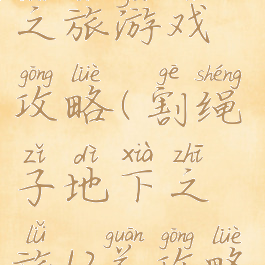 之旅游戏
gōng lüè gē shéng
攻略(割绳
zǐ dì xià zhī
子地下之
lǚ guān gōng lüè
旅12关攻略